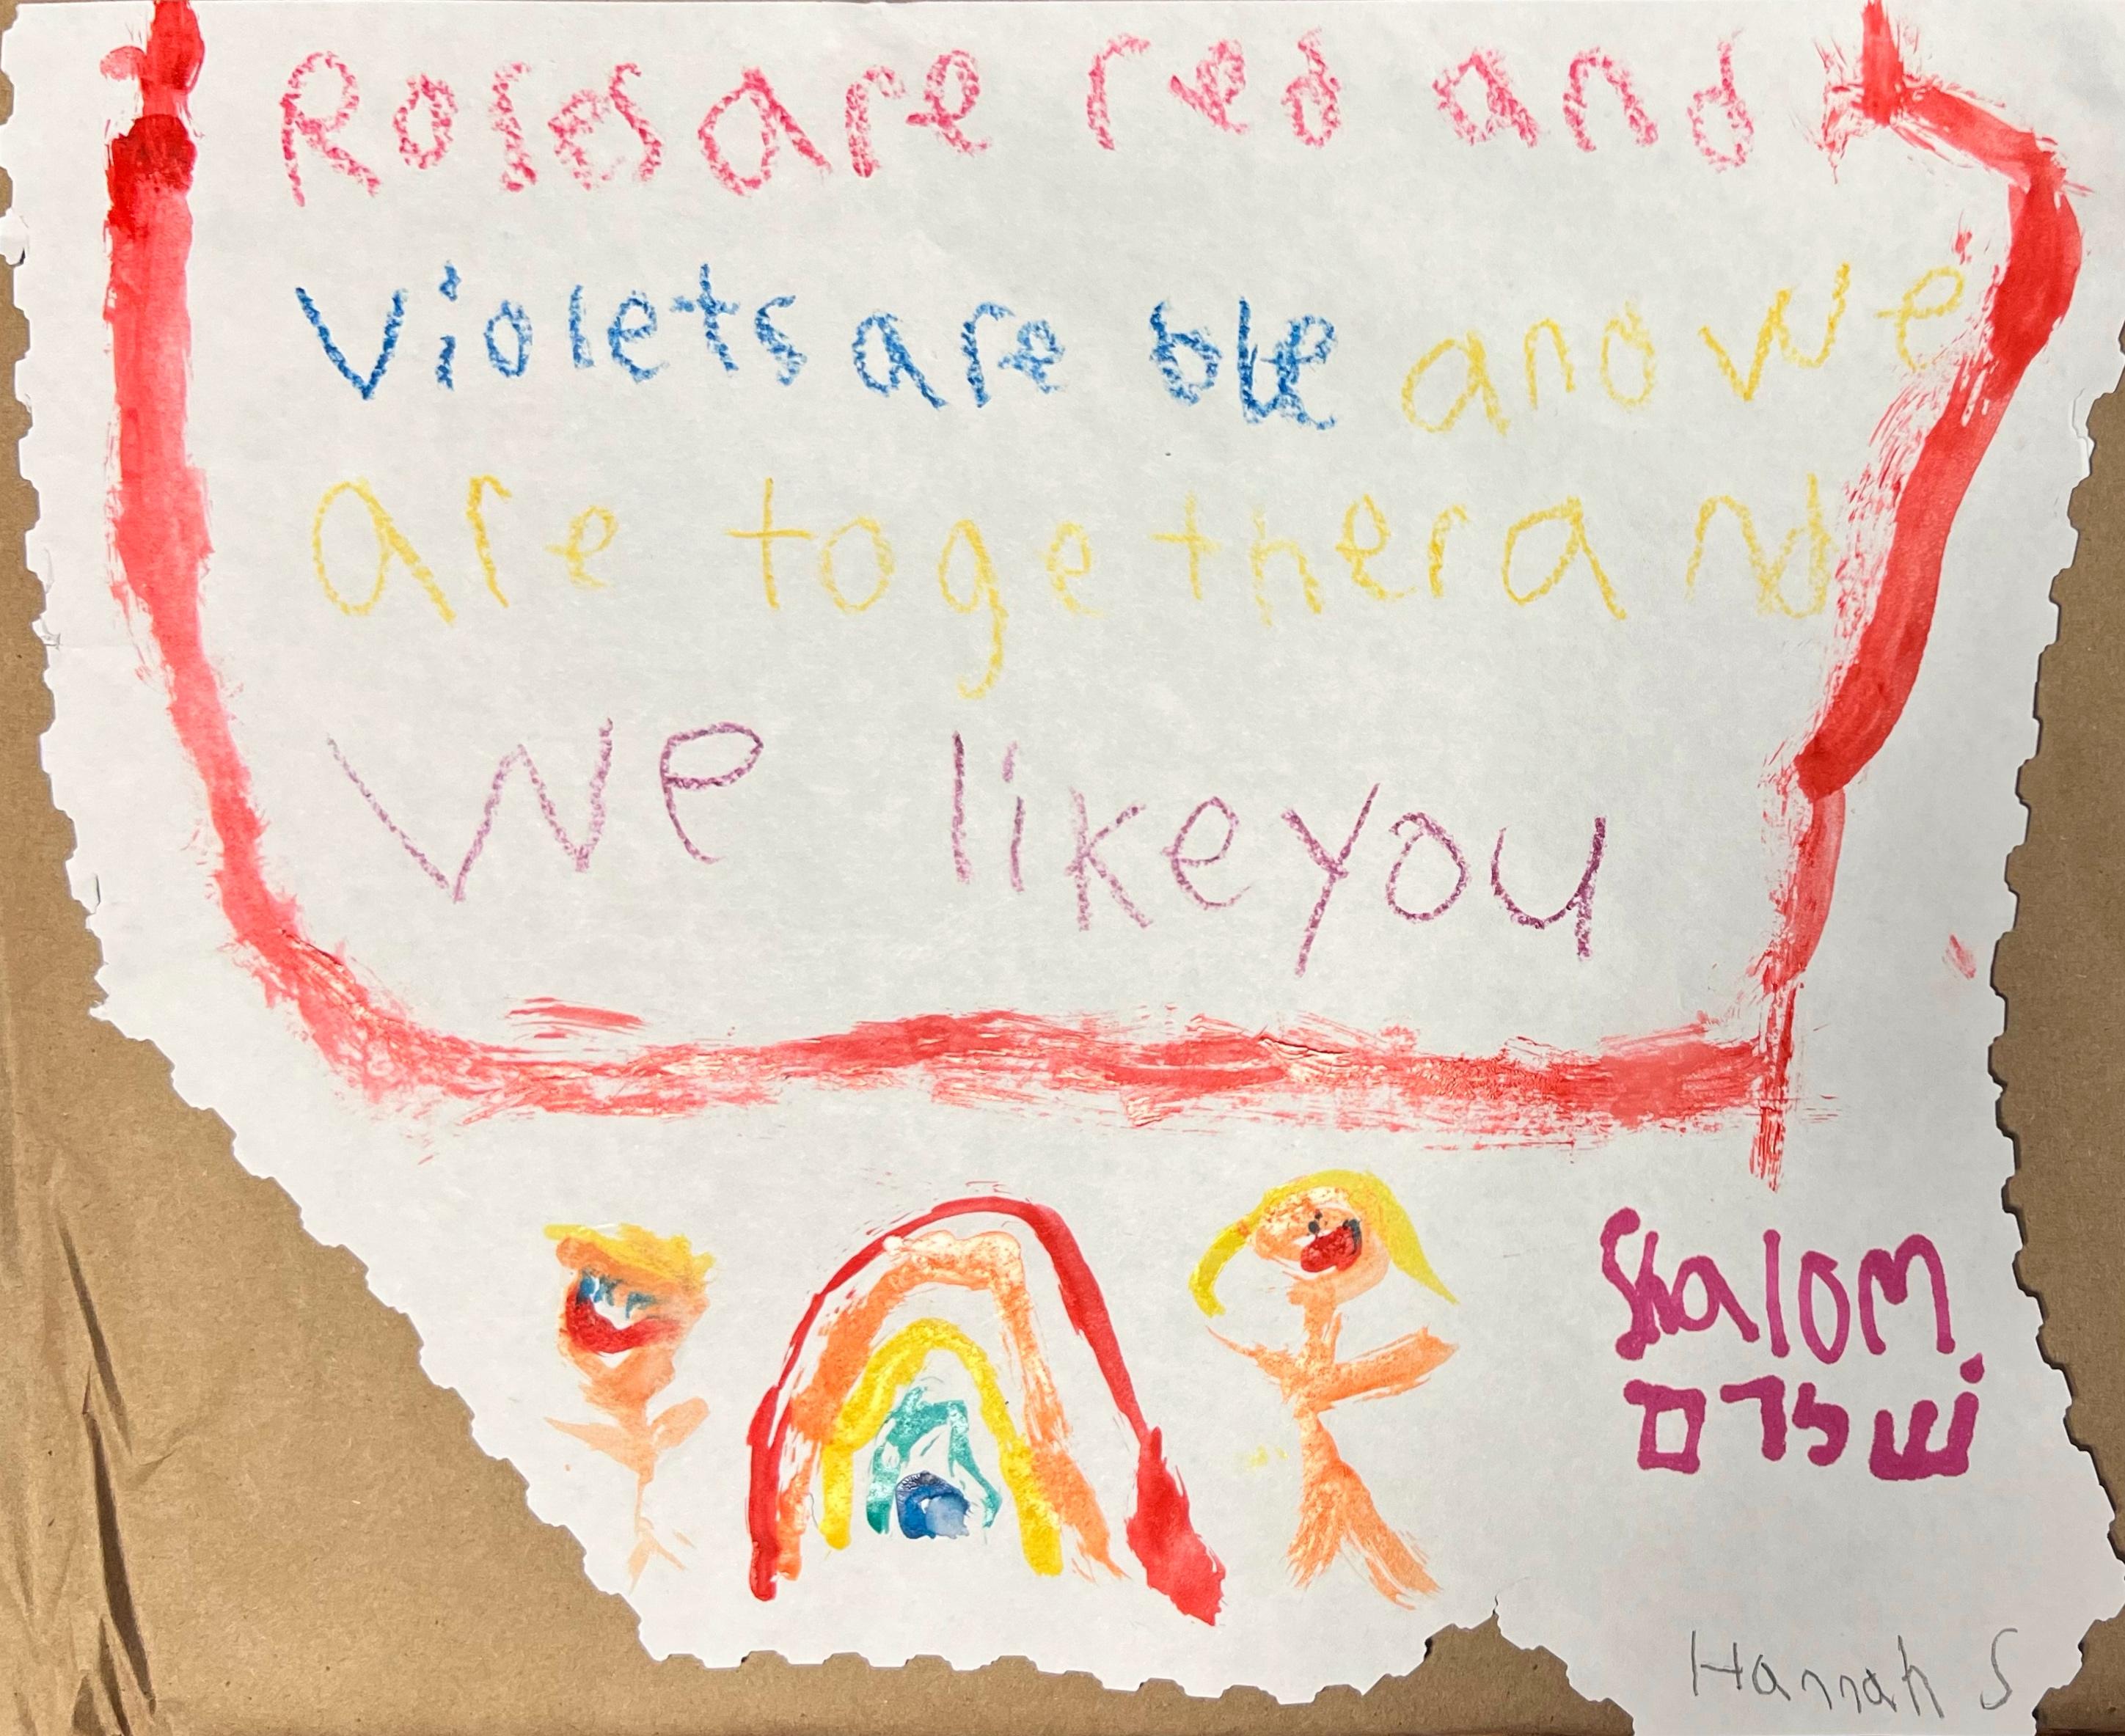 Roses are red and
Violets are ble and we
are together and
We like you
Shalom
שלום
Hannah S